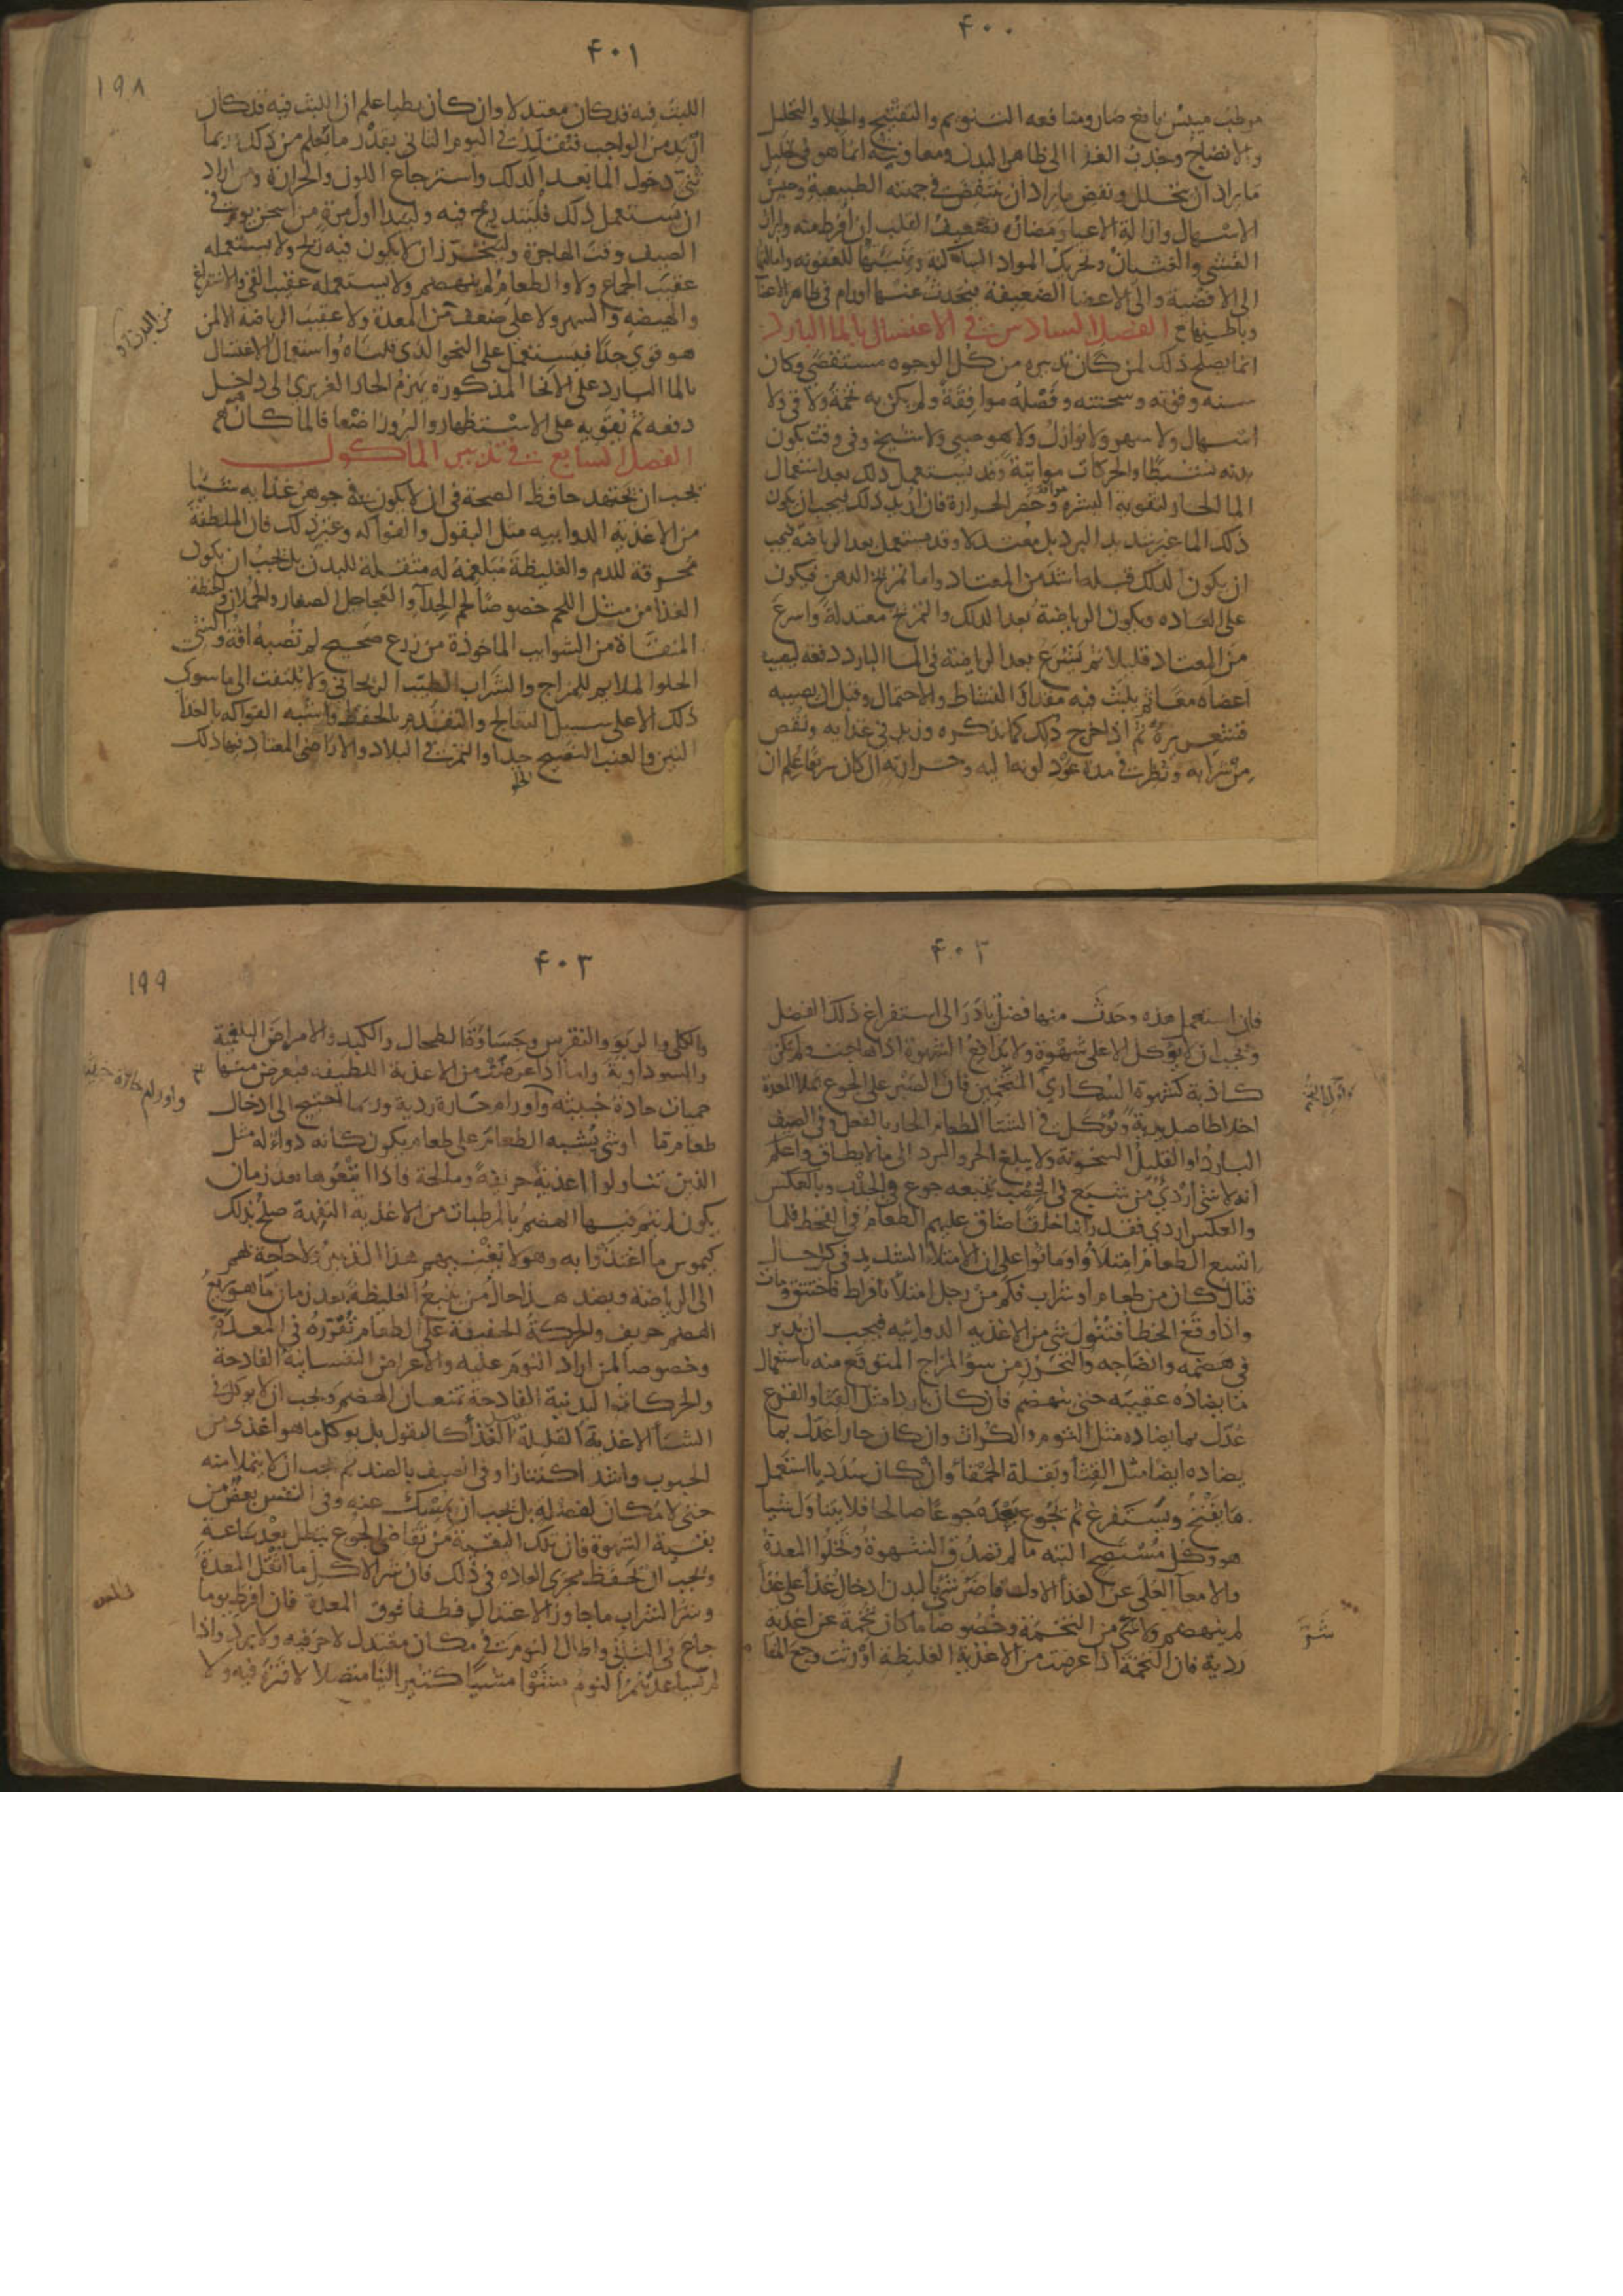 ۴۰۰
مرطب ميبس نافع ضار ومنافعه التنويم والتفتيح والجلا والتحليل
والانضاج وجذب الغذا الى ظاهر البدن ومعاونته انما هو فى تحليل
ما يراد ان يتحلل ونفض ما يراد ان ينتفض فى جهته الطبيعية وحبس
الاسهال وازالة الاعيا ومضاره تضعيف القلب ان افرط منه وايراث
الغشى والغثيان وتحريك المواد الساكنة وتهيئتها للعفونه وامالتها
الى الافضية والى الاعضا الضعيفة فيحدث عنها اورام فى ظاهر الاعضا
وباطنها الفصل السادس فى الاغتسال بالما البارد
انما يصلح ذلك لمن كان تدبيره من كل الوجوه مستقصى وكان
سنه وقوته وسحنته وفصله موافقة ولم يكن به تخمة ولا قى ولا
اسهال ولا سهر ولا نوازل ولا هو صبى ولا شيخ وفى وقت يكون
بدنه نشيطا والحركات مواتية وقد يستعمل ذلك بعد استعمال
الما الحار لتقوية البشرة وحصر الحرارة فان اريد ذلك فيجب ان يكون
ذلك الما غير شديد البرد بل معتدلا وقد يستعمل بعد الرياضة فيجب
ان يكون الدلك قبله اشد من المعتاد واما تمريخ الدهن فيكون
على العاده ويكون الرياضة بعد الدلك والتمريخ معتدلة واسرع
من المعتاد قليلا ثم يشرع بعد الرياضة فى الما البارد دفعه ليصيب
اعضاه معا ثم يلبث فيه مقدار النشاط والاحتمال وقبل ان يصيبه
قشعريرة ثم اذا خرج دلك كما نذكره وزيد فى غذايه ونقص
من شرابه ونظر فى مدة عود لونه اليه وحرارته ان كان سريعا علم ان
۴۰۱
۱۹۸
اللبث فيه قد كان معتدلا وان كان بطيا علم ان اللبث فيه قد كان
ازيد من الواجب فيقدر فى اليوم الثانى بقدر ما يعلم من ذلك وربما
ثنى دخول الما بعد الدلك واسترجاع اللون والحرارة ومن اراد
ان يستعمل ذلك فليتدرج فيه وليبدا اول مرة من اسخن يوم فى
الصيف وقت الهاجرة وليتحرز ان لا يكون فيه ريح ولا يستعمله
عقيب الجماع ولا والطعام لم ينهضم ولا يستعمله عقيب القى والاستفراغ
والهيضه والسهر ولا على ضعف من المعدة ولا عقيب الرياضة الا لمن
من البدن و
هو قوى جدا فيستعمل على النحو الذى قلناه واستعمال الاغتسال
بالما البارد على الانحا المذكورة يهزم الحار الغريزى الى داخل
دفعه ثم يقويه على الاستظهار والبروز اضعافا لما كان
الفصل السابع فى تدبير الماكول
يجب ان يجتهد حافظ الصحة فى ان لا يكون فى جوهر غذايه شيا
من الاغذية الدواييه مثل البقول والفواكه وغير ذلك فان الملطفة
محرقة للدم والغليظة مبلغمة له مثقلة للبدن بل يجب ان يكون
الغذا من مثل اللحم خصوصا لحم الجدا والعجاجيل الصغار والحملان والحنطة
المنقاة من الشوايب الماخوذة من زرع صحيح لم تصبه افة والشى
الحلو الملايم للمزاج والشراب الطيب الريحانى ولا يلتفت الى ما سوى
ذلك الا على سبيل التعالج والتقدم بالحفظ واشبه الفواكه بالغذا
التين والعنب النضيج جدا والتمر فى البلاد والاراضى المعتاد فيها ذلك
۴۰۲
فان استعمل هذه وحدث منها فضل بادر الى استفراغ ذلك الفضل
ويجب ان لا يوكل الا على شهوة ولا يدافع الشهوة اذا هاجت ولم تكن
كاذبة كشهوة السكارى المتخمين فان الصبر على الجوع يملا المعدة
اخلاطا صديدية ويوكل فى الشتا الطعام الحار بالفعل وفى الصيف
البارد او القليل السخونة ولا يبلغ الحر والبرد الى ما لا يطاق واعلم
انه لا شى اردى من شبع فى الخصب يتبعه جوع فى الجدب وبالعكس
والعكس اردى فقد راينا خلقا ضاق عليهم الطعام فى القحط فلما
اتسع الطعام امتلاوا وماتوا على ان الامتلا الشديد فى كل حال
قتال كان من طعام او شراب فكم من رجل امتلا بافراط فاختنق ومات
واذا وقع الخطا فتنوول شى من الاغذيه الدوائيه فيجب ان يدبر
فى هضمه وانضاجه والتحرز من سوء المزاج المتوقع منه باستعمال
ما يضاده عقيبه حتى ينهضم فان كان باردا مثل القثا والقرع
عدل بما يضاده مثل الثوم والكراث وان كان حارا عدل بما
يضاده ايضا مثل القثا وبقلة الحمقا وان كان سدديا استعمل
ما يفتح ويستفرغ ثم يجوع بعده جوعا صالحا فلا يتناول شيا
هو وكل مستصح البته ما لم تصدق الشهوة وتخلو المعدة
والامعا العلى عن الغذا الاول فاضر شى بالبدن ادخال غذا على غذا
لم ينهضم ولا شى شر من التخمة وخصوصا ما كان تخمة عن اغذية
ردية فان التخمة اذا عرضت من الاغذية الغليظة اورثت وجع المفا
۴۰۳
۱۹۹
والكلى والربو والنقرس وجساوة الطحال والكبد والامراض البلغمية
والسوداوية واما اذا عرضت من الاغذية اللطيفة فيعرض منها
حميات حادة خبيثه واورام حارة ردية وربما احتيج الى ادخال
طعام ما او شى يشبه الطعام على طعام يكون كانه دواء له مثل
الذين تناولوا اغذية حريفة ومالحة فاذا اتبعوها بعد زمان
يكون لم يتم فيها الهضم بالمرطبات من الاغذية التفهة صلح بذلك
كيموس ما اغتذوا به وهولا يغنيهم هذا التدبير ولا حاجة لهم
الى الرياضة وبضد هذا حال من يتبع الغليظة بعد زمان ما هو سريع
الهضم حريف والحركة الخفيفة على الطعام تقرره فى المعدة
وخصوصا لمن اراد النوم عليه والاعراض النفسانية الفادحة
والحركات البدنية الفادحة تمنعان الهضم ويجب ان لا يوكل فى
الشتا الاغذية القليلة الغذا كالبقول بل يوكل ما هو اغذى من
الحبوب واشد اكتنازا وفى الصيف بالضد ثم يجب ان لا يتملا منه
حتى لا مكان لفضلة بل يجب ان يمسك عنه وفى النفس بعض من
بقية الشهوة فان تلك البقية من تقاضى الجوع يبطل بعد ساعة
ويجب ان يحفظ مجرى العادة فى ذلك فان شر الاكل ما اثقل المعدة
وشر الشراب ما جاوز الاعتدال وطفا فوق المعدة فان افرط يوما
جاع فى الثانى واطال النوم فى مكان معتدل لا حر فيه ولا برد واذا
لم يساعدهم النوم مشوا مشيا كثيرا لينا متصلا لا فترة فيه ولا